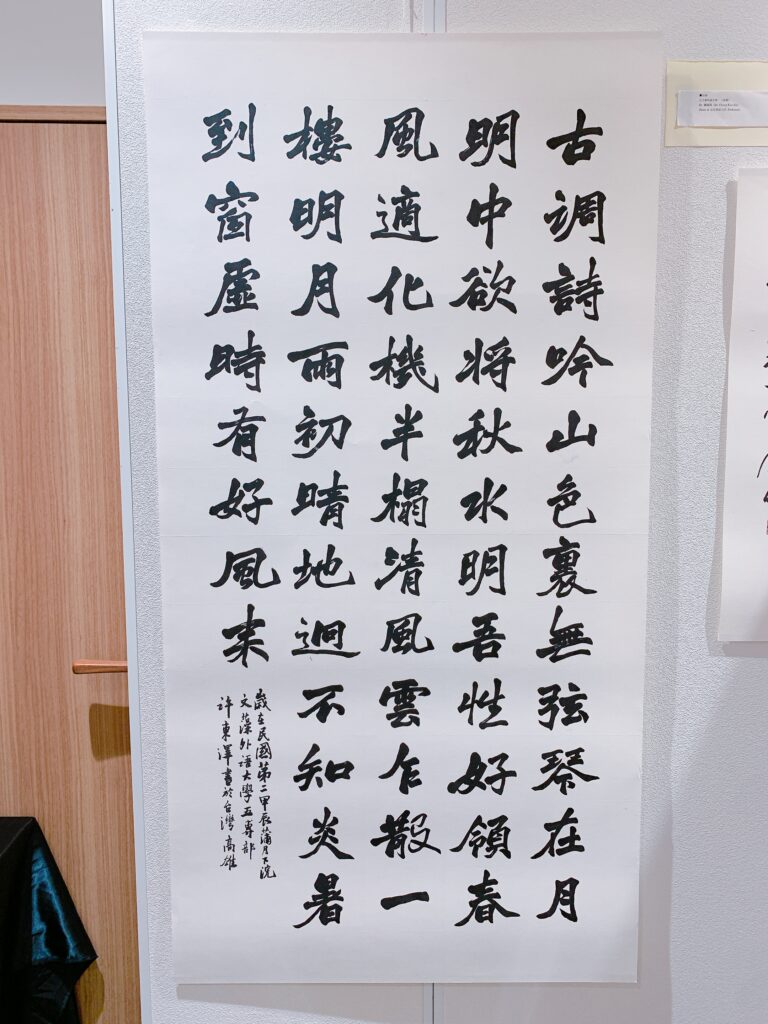 古調詩吟山色裏無弦琴在月
明中欲将秋水明吾性好領春
風適化機半榻清風雲乍散一
樓明月雨初晴地迥不知炎暑
到窗虛時有好風来
歲在民國第二甲辰蒲月下浣
文藻外語大學五專部
許東澤書於台灣高雄